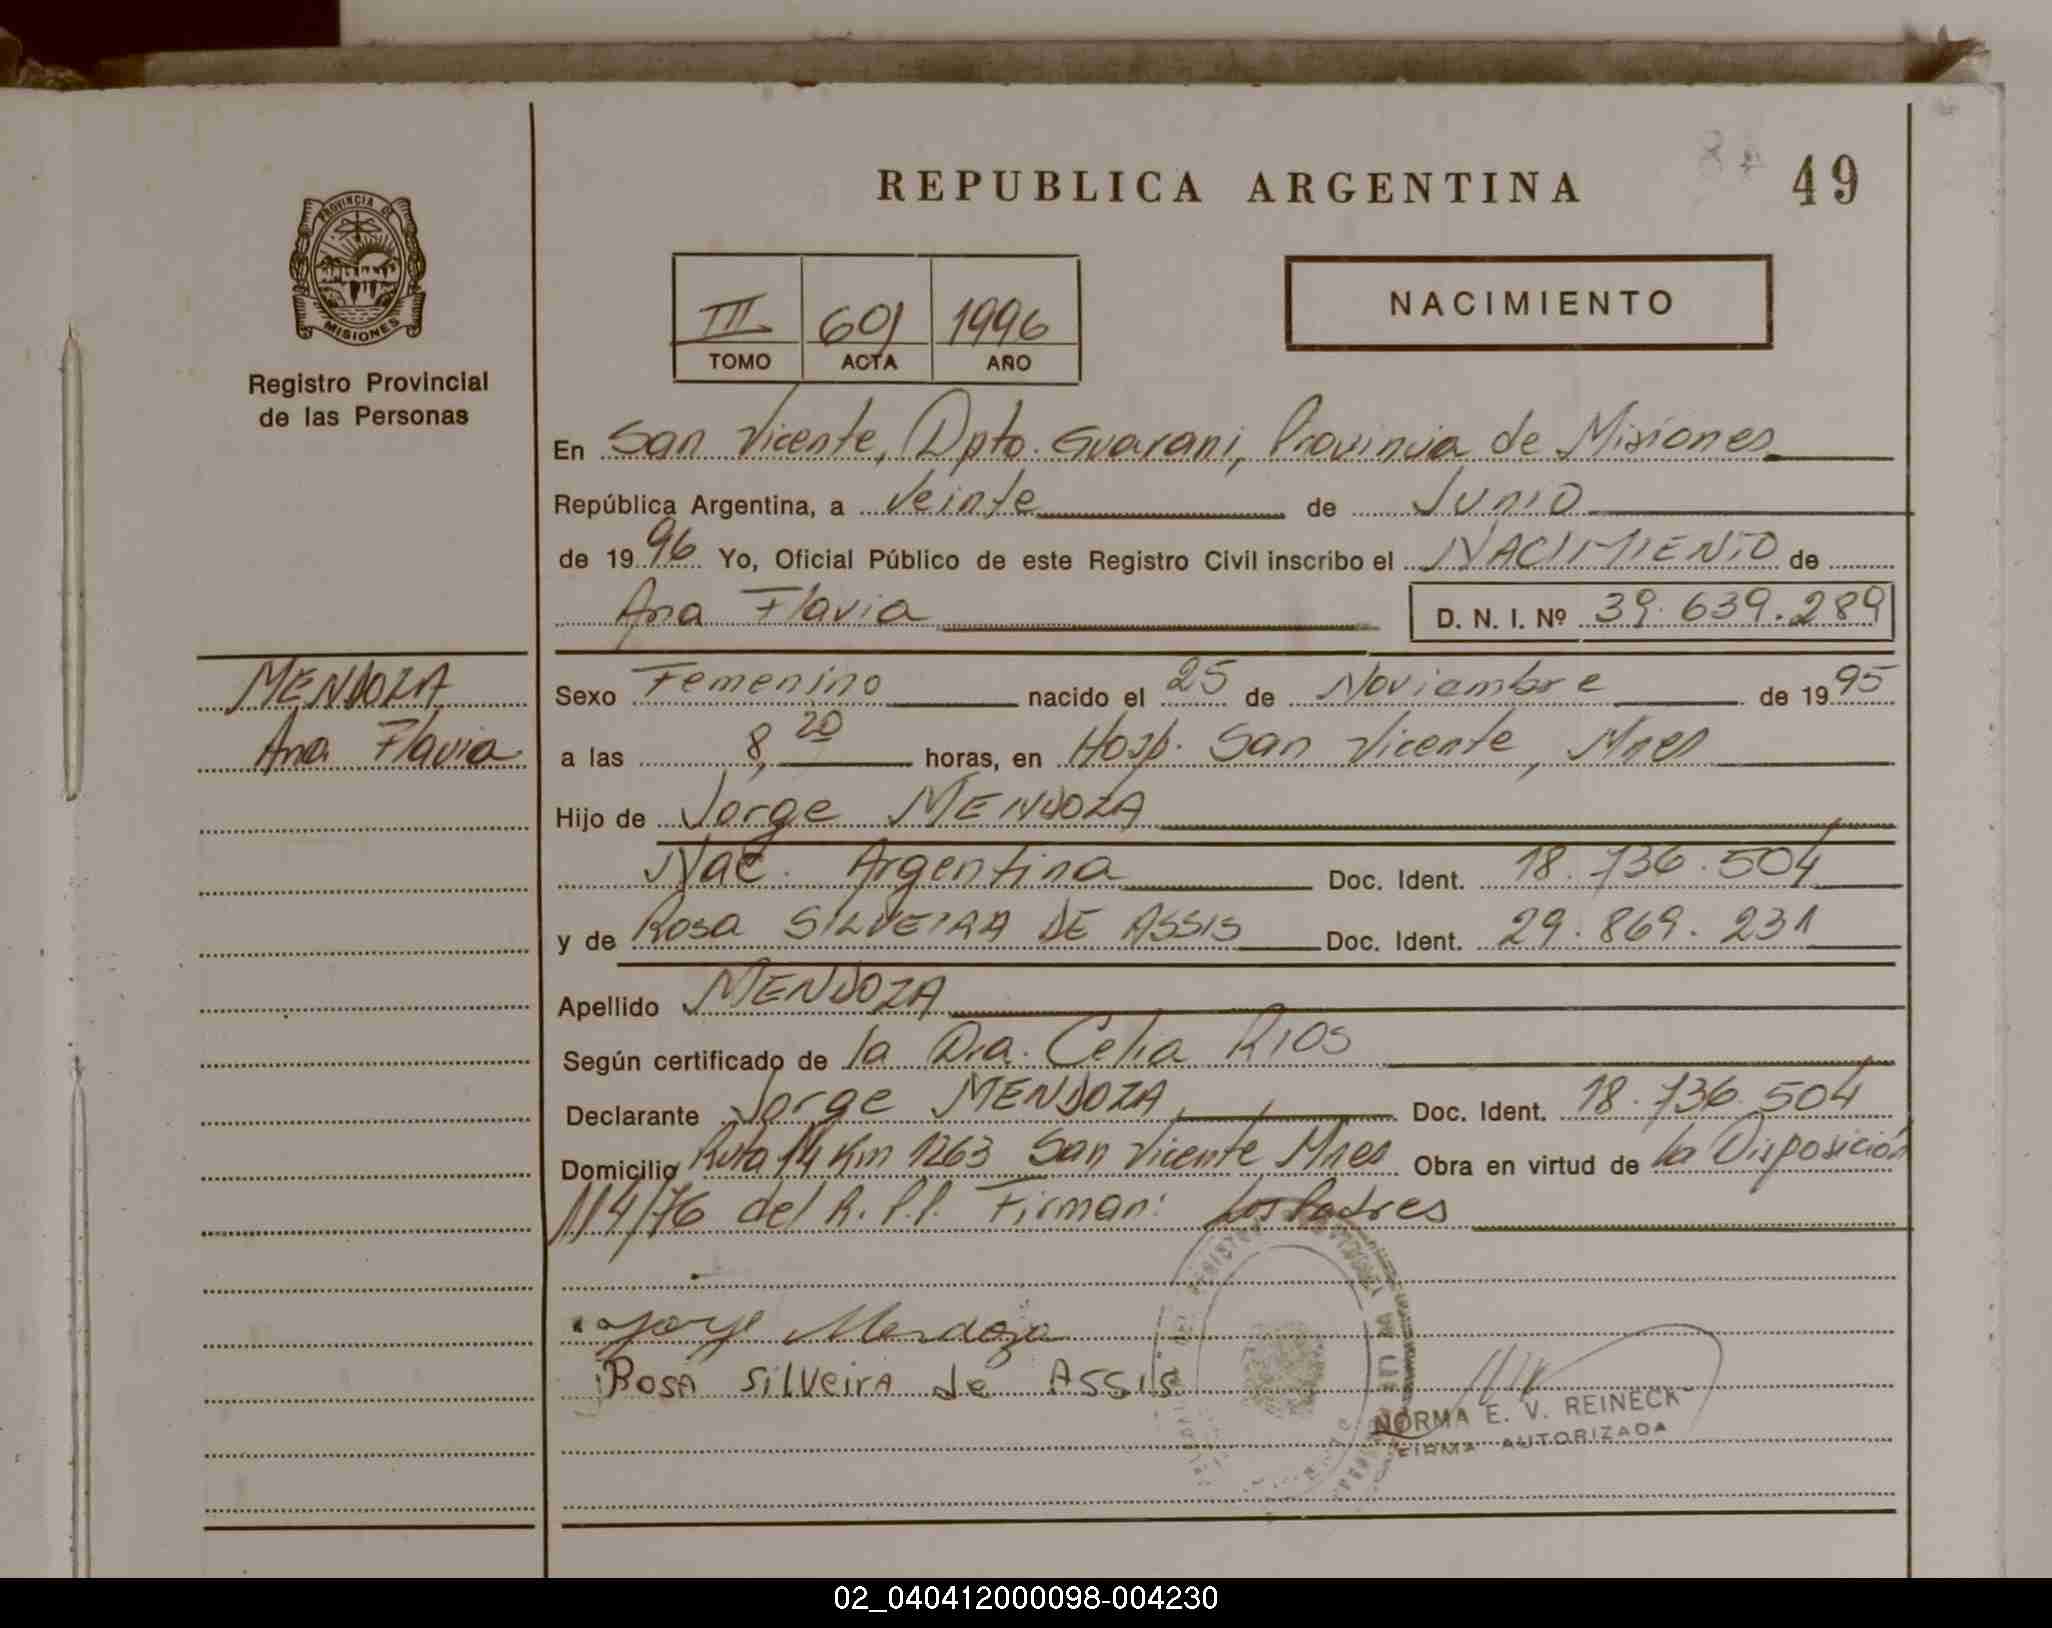 REPUBLICA ARGENTINA
49
PROVINCIA DE
MISIONES
Registro Provincial
de las Personas
III 601 1996
TOMO ACTA AÑO
NACIMIENTO
En San Vicente, Dpto. Guarani, Provincia de Misiones
República Argentina, a Veinte de Junio
de 1996 Yo, Oficial Público de este Registro Civil inscribo el NACIMIENTO de
Ana Flavia D. N. I. Nº 39.639.289
MENDOZA
Ana Flavia
Sexo Femenino nacido el 25 de Noviembre de 1995
a las 8,20 horas, en Hosp. San Vicente, Mnes
Hijo de Jorge MENDOZA
Nac. Argentina Doc. Ident. 18.736.504
y de Rosa SILVEIRA DE ASSIS Doc. Ident. 29.869.231
Apellido MENDOZA
Según certificado de la Dra. Celia RIOS
Declarante Jorge MENDOZA, Doc. Ident. 18.736.504
Domicilio Ruta 14 Km 1263 San Vicente Mnes Obra en virtud de la Disposición
114/76 del R.P.P. Firman: Los Padres
Jorge Mendoza
Rosa Silveira de Assis
NORMA E. V. REINECK
FIRMA AUTORIZADA
02_040412000098-004230